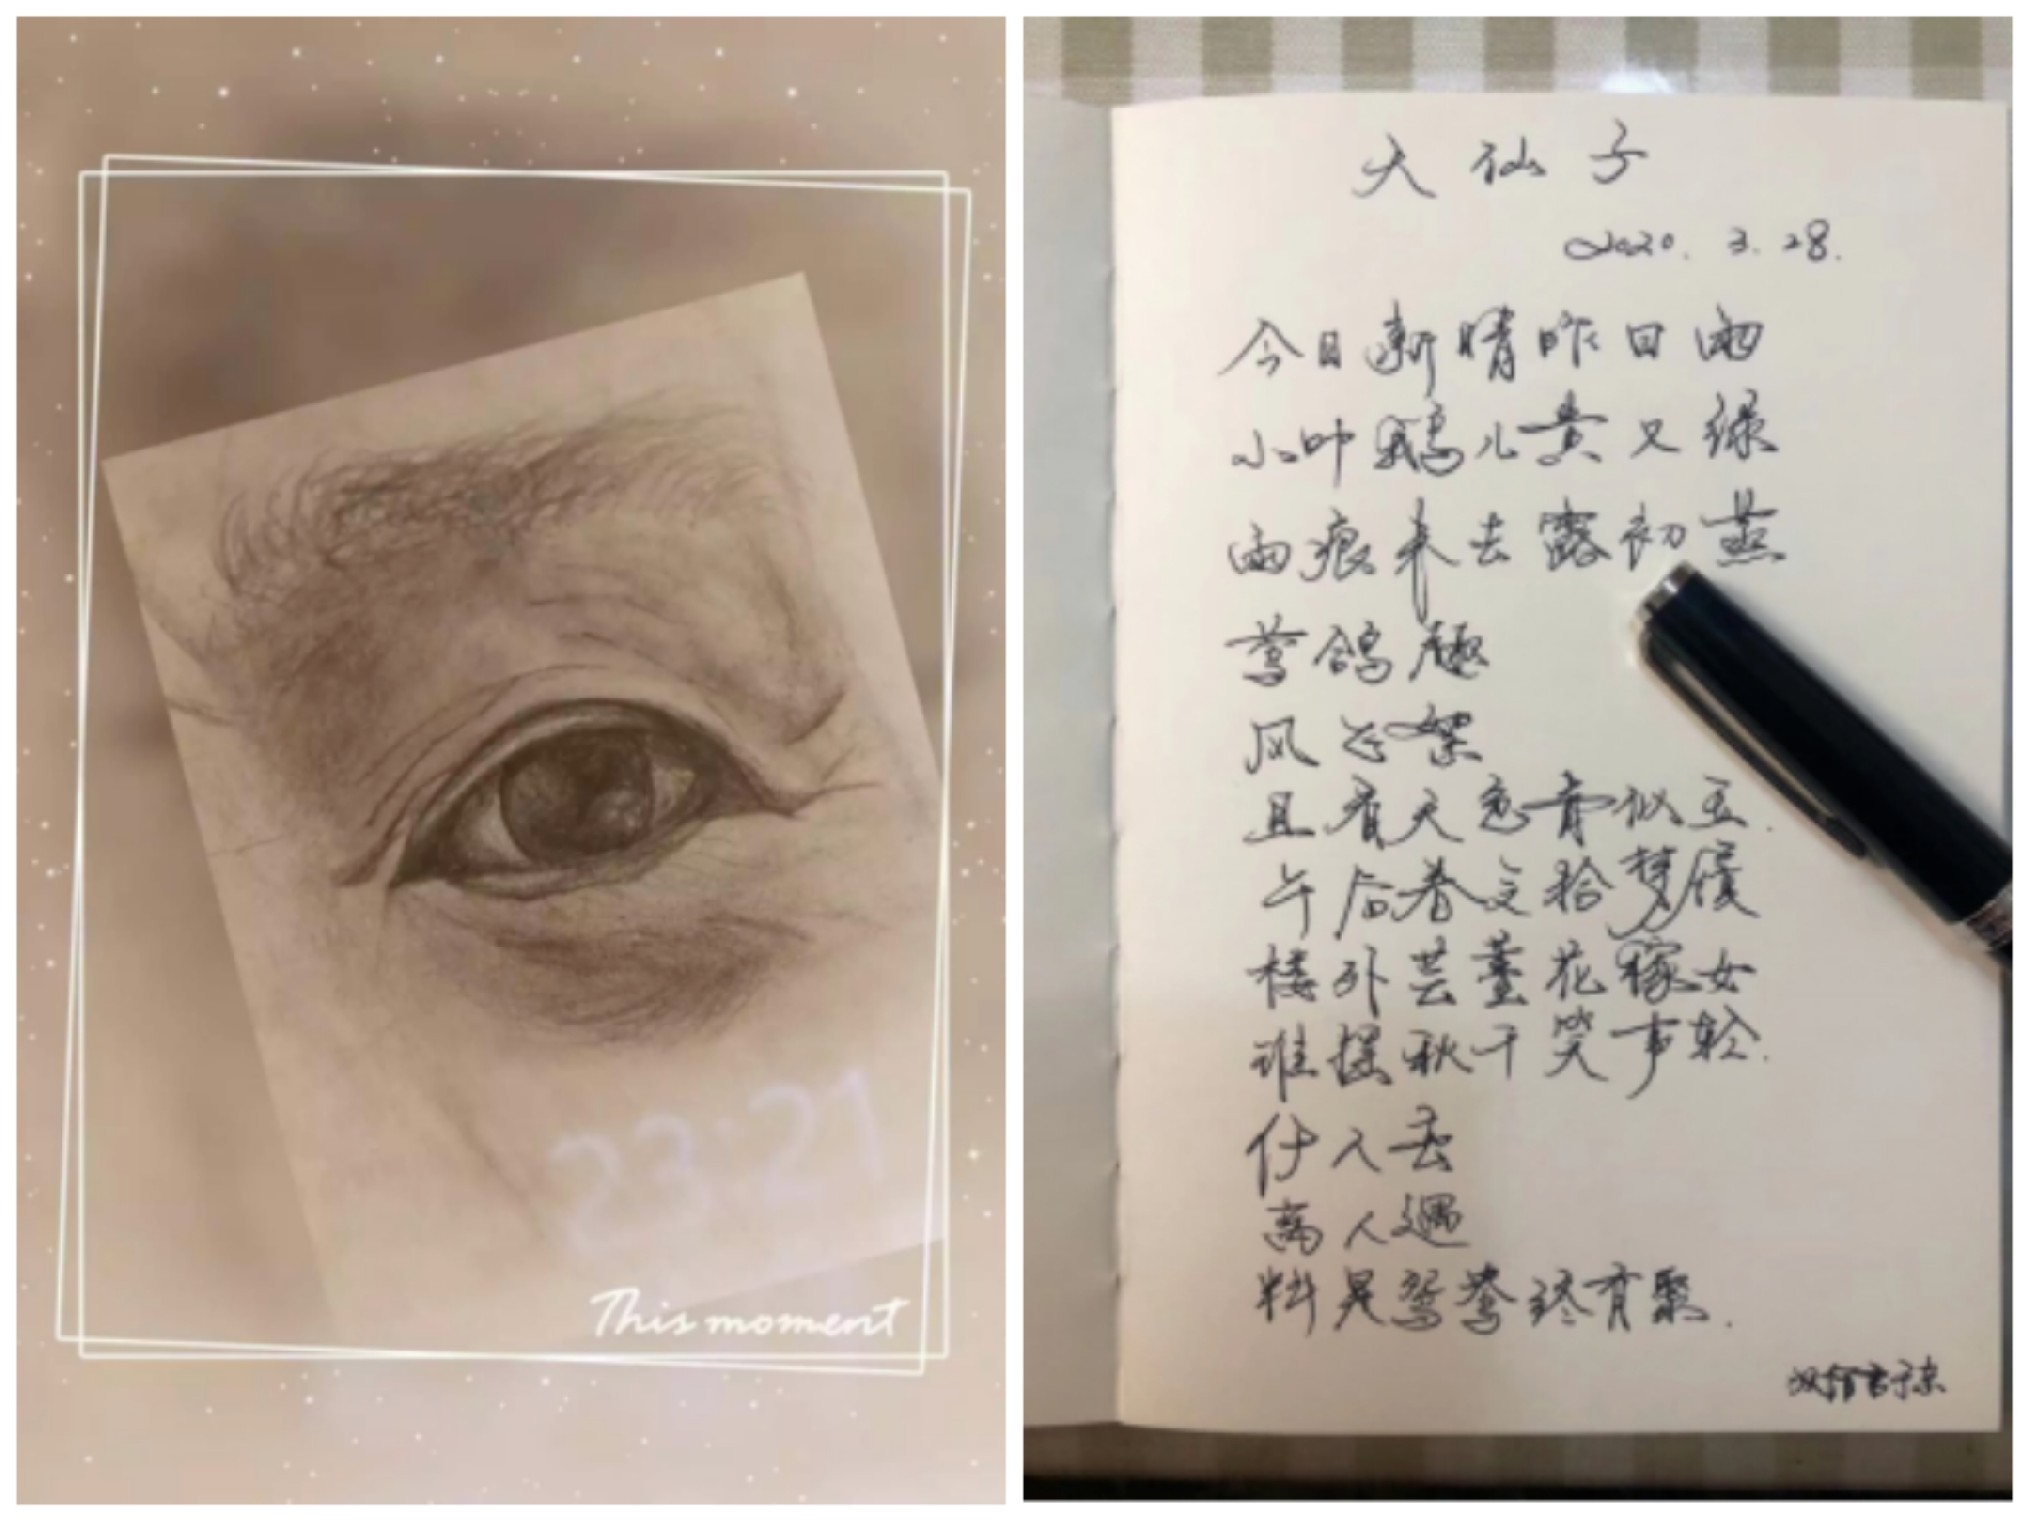 天仙子
2020.3.28.
今日新晴昨日雨
小叶鹅儿黄又绿
雨痕未去露初蒸
莺鸽趣
风飞絮
且看天色青似玉.
午后春文拾梦
楼外芸薹花嫁女
谁摇秋千笑声轻.
人
离人遇
料是鸳鸯终有聚.
23:21
This moment